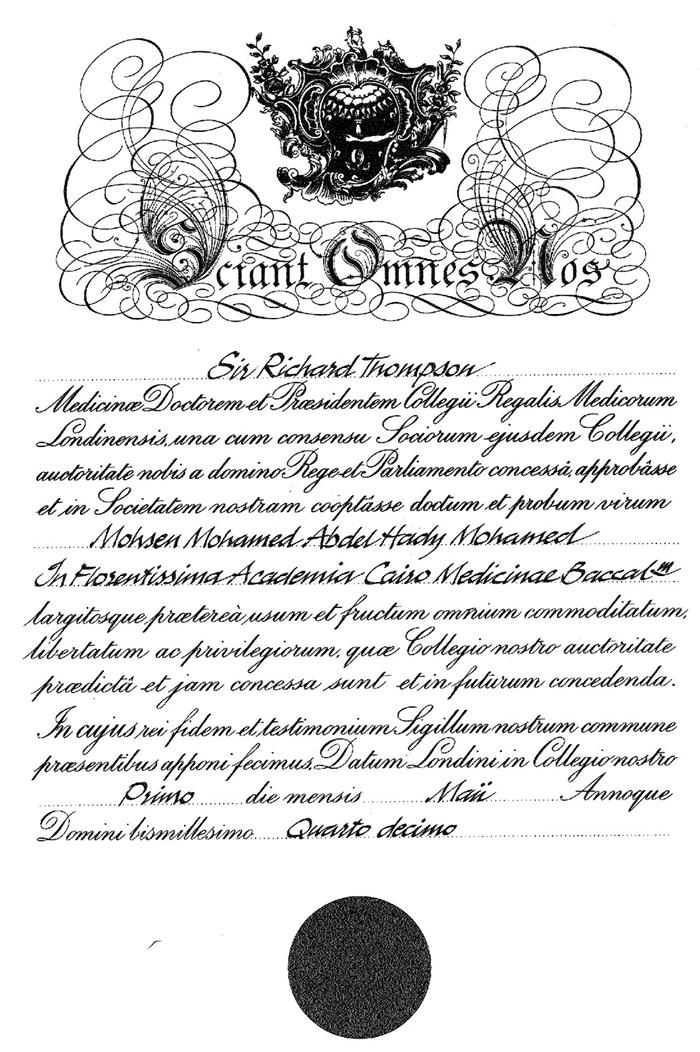 Sciant Omnes Nos
Sir Richard Thompson
Medicinæ Doctorem et Præsidentem Collegii Regalis Medicorum
Londinensis, una cum consensu Sociorum ejusdem Collegii,
auctoritate nobis a domino Rege et Parliamento concessâ, approbâsse
et in Societatem nostram cooptâsse doctum et probum virum
Mohsen Mohamed Abdel Hady Mohamed
In Florentissima Academia Cairo Medicinae Baccalm
largitosque prætereà usum et fructum omnium commoditatum,
libertatum ac privilegiorum, quæ Collegio nostro auctoritate
prædictâ et jam concessa sunt et in futurum concedenda.
In cujus rei fidem et testimonium Sigillum nostrum commune
præsentibus apponi fecimus. Datum Londini in Collegio nostro
Primo die mensis Maii Annoque
Domini bismillesimo Quarto decimo